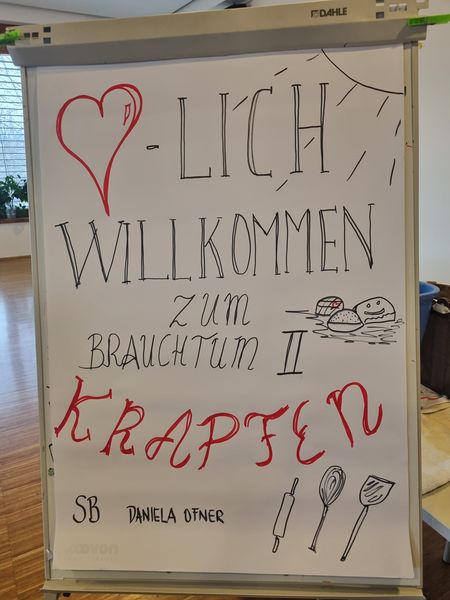 DAHLE
♥-LICH
WILLKOMMEN
ZUM
BRAUCHTUM II
KRAPFEN
SB DANIELA OFNER